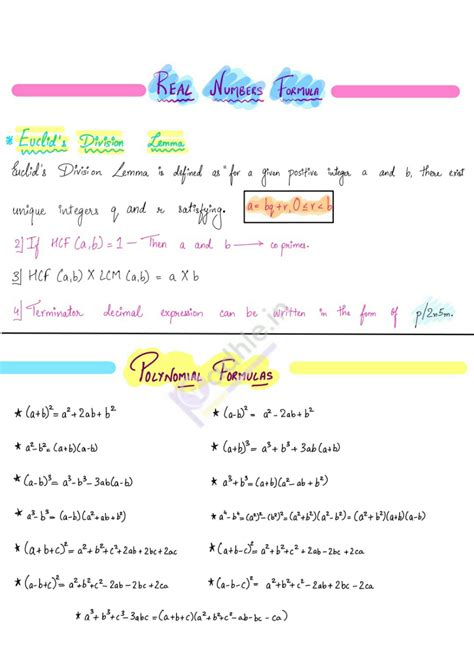 REAL NUMBERS FORMULA
* Euclid's Division Lemma
Euclid's Division Lemma is defined as "for a given positive integer a and b, there exist
unique integers q and r satisfying. a = bq+r, 0≤r<b
2] If HCF (a,b) = 1 – Then a and b → co primes.
3] HCF (a,b) X LCM (a,b) = a X b
4] Terminator decimal expression can be written in the form of p/2n5m.
POLYNOMIAL FORMULAS
* (a+b)² = a²+2ab+b² * (a-b)² = a²-2ab+b²
* a²-b² = (a+b)(a-b) * (a+b)³ = a³+b³+3ab(a+b)
* (a-b)³ = a³-b³-3ab(a-b) * a³+b³ = (a+b)(a²-ab+b²)
* a³-b³ = (a-b)(a²+ab+b²) * a⁴-b⁴ = (a²)²-(b²)² = (a²+b²)(a²-b²) = (a²+b²)(a+b)(a-b)
* (a+b+c)² = a²+b²+c²+2ab+2bc+2ac * (a+b-c)² = a²+b²+c²+2ab-2bc-2ca
* (a-b+c)² = a²+b²+c²-2ab-2bc+2ca * (a-b-c)² = a²+b²+c²-2ab+2bc-2ca
* a³+b³+c³-3abc = (a+b+c)(a²+b²+c²-ab-bc-ca)